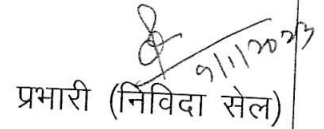 9/1/2023
प्रभारी (निविदा सेल)